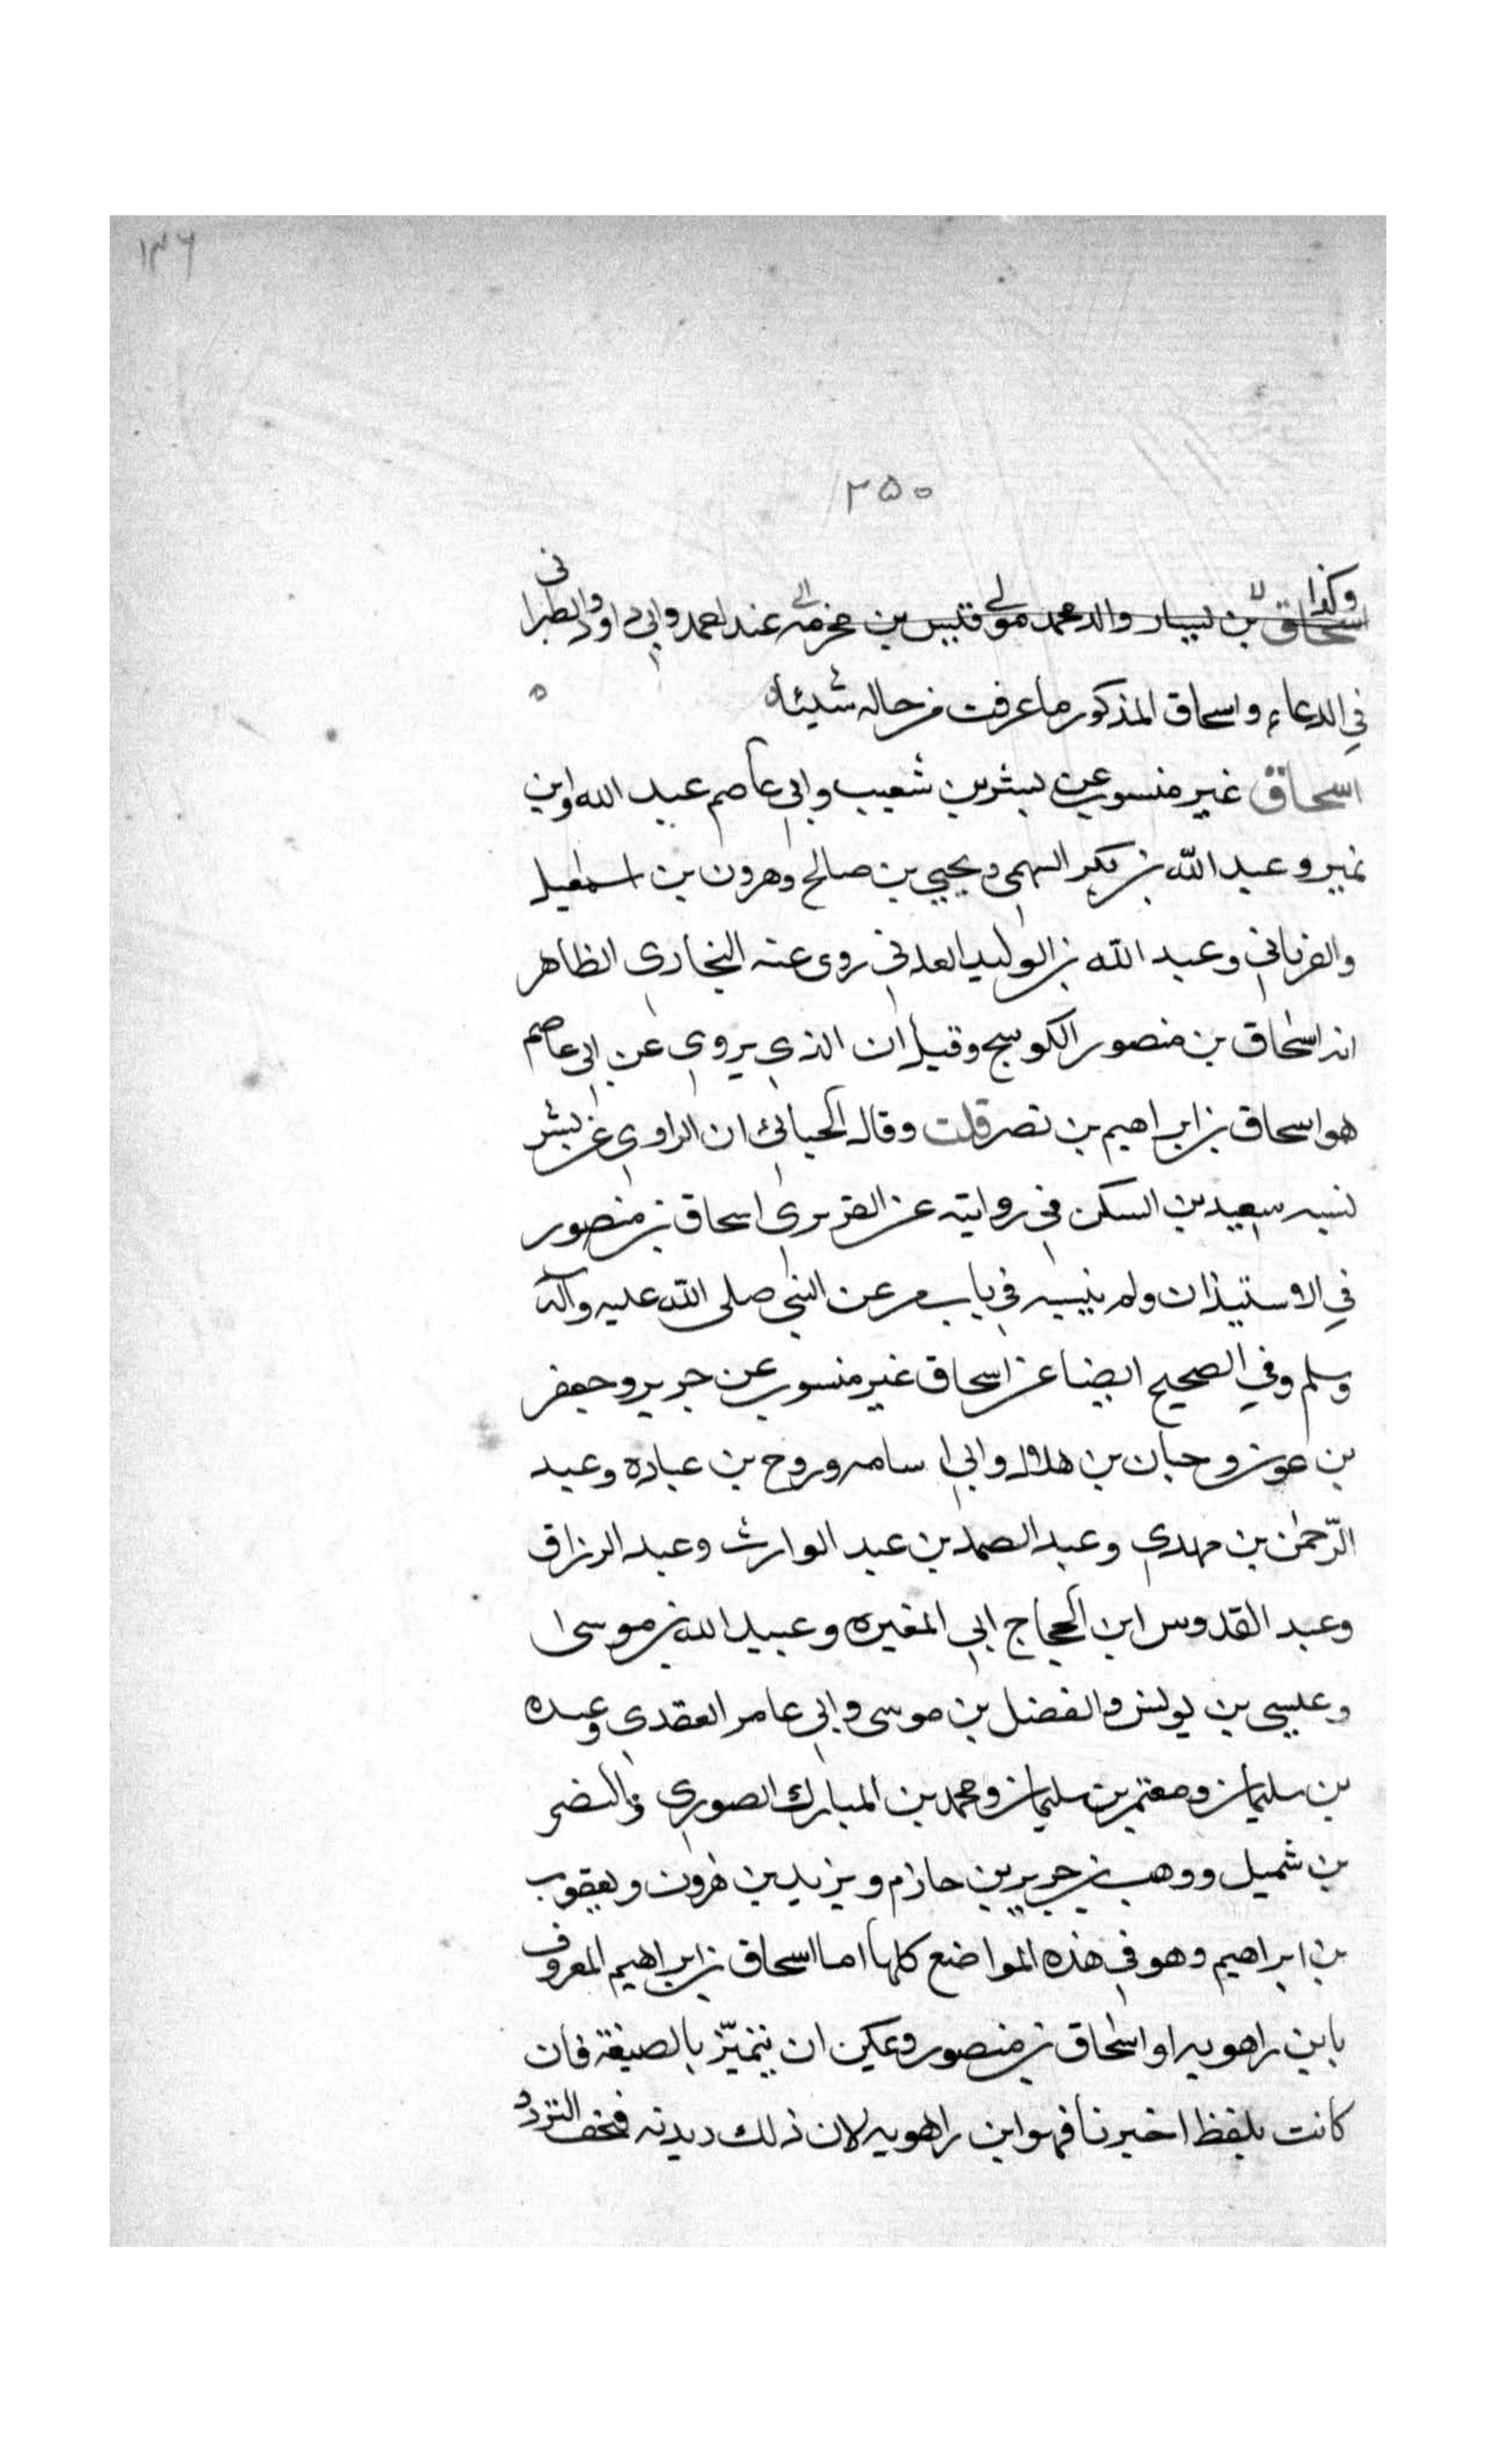 ١٣٦
٢٥٠
وكذا
اسحاق بن يسار والد محمد مولى قيس بن مخرمه الى عند احمد وابي داود والطبرانى
في الدعاء واسحاق المذكور ما عرفت من حاله شيئا ه
اسحاق غير منسوب عن بشر بن شعيب وابي عاصم عبد الله وابن
نمير و عبد الله بن بكر السهمي ويحيي بن صالح وهرون بن اسمعيل
والفريابي وعبد الله بن الوليد العدني روى عنه البخاري الظاهر
انه اسحاق بن منصور الكوسج وقيل ان الذي يروي عن ابي عاصم
هو اسحاق بن ابراهيم بن نصر قلت وقال الجيانئ ان الراوي عن بشر
نسبه سعيد بن السكن في روايته عن الفربري اسحاق بن منصور
في الاستيذان ولم ينسبه في باب مرض النبي صلى الله عليه وآله
وسلم وفي الصحيح ايضا عن اسحاق غير منسوب عن جرير وجعفر
بن عون و حبان بن هلال وابي اسامه وروح بن عباده وعبد
الرّحمن بن مهدي وعبد الصمد بن عبد الوارث وعبد الرزاق
وعبد القدوس ابن الحجاج ابي المغيره وعبيد الله بن موسى
وعيسى بن يونس والفضل بن موسى وابي عامر العقدي وعبده
بن سليمان ومعتمر بن سليمان ومحمد بن المبارك الصوري والنضر
بن شميل ووهب بن جرير بن حازم ويزيد بن هرون ويعقوب
بن ابراهيم وهو في هذه المواضع كلها اما اسحاق بن ابراهيم المعروف
بابن راهويه او اسحاق بن منصور ويمكن ان يتميّز بالصيغة فان
كانت بلفظ اخبرنا فهو ابن راهويه لان ذلك ديدنه فخف التردد